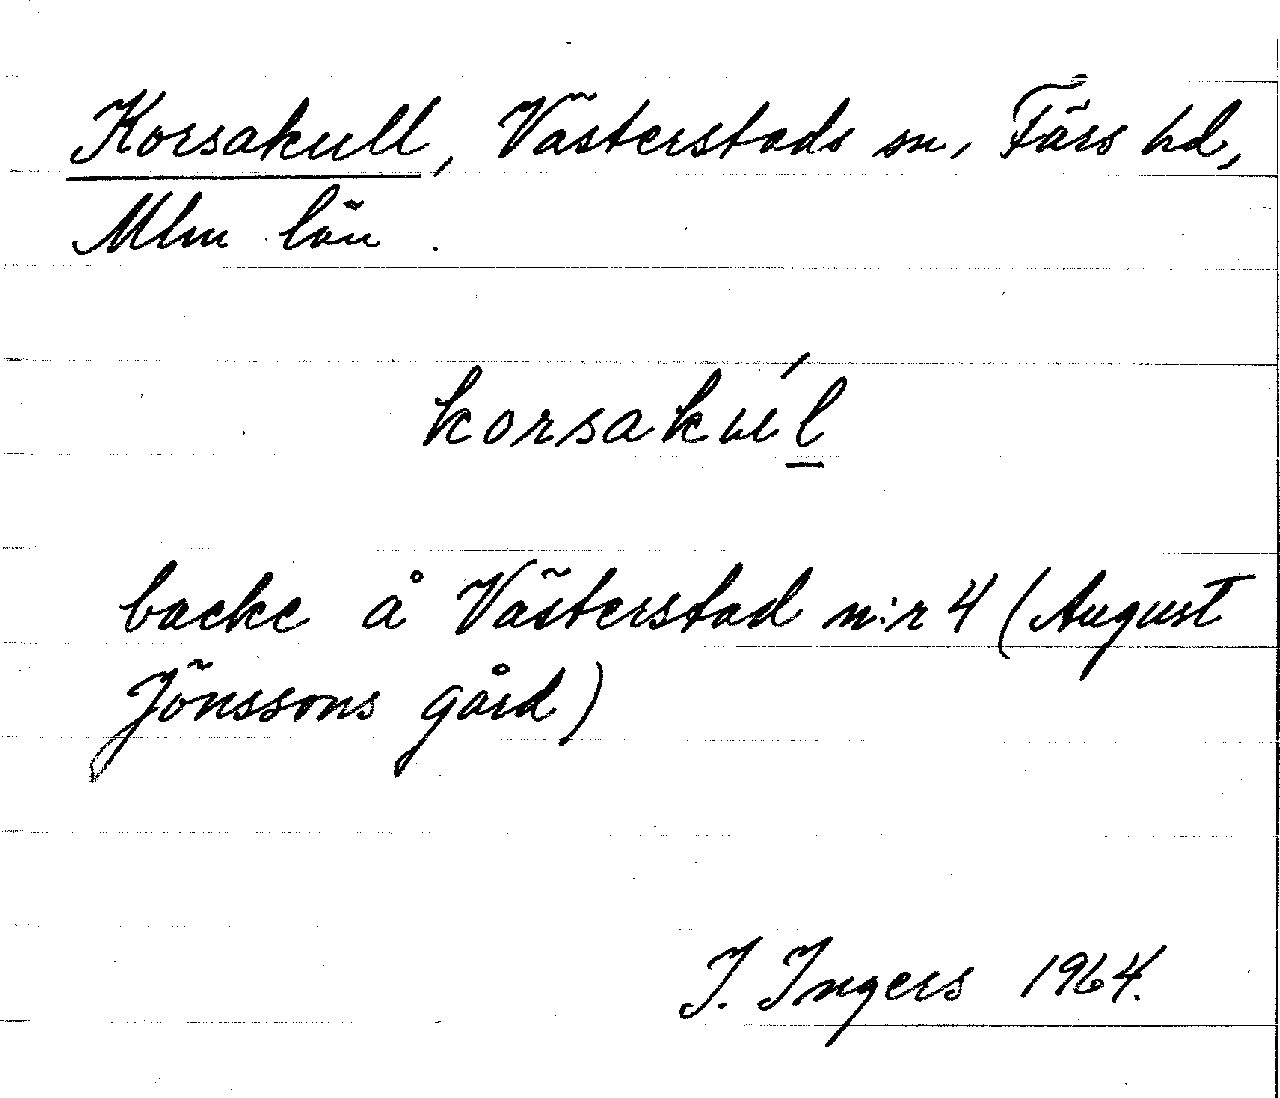 Korsakull, Västerstads sn, Färs hd,
Mlm län.
korsakúl
backe å Västerstad n:r 4 (August
Jönssons gård)
I. Ingers 1964.